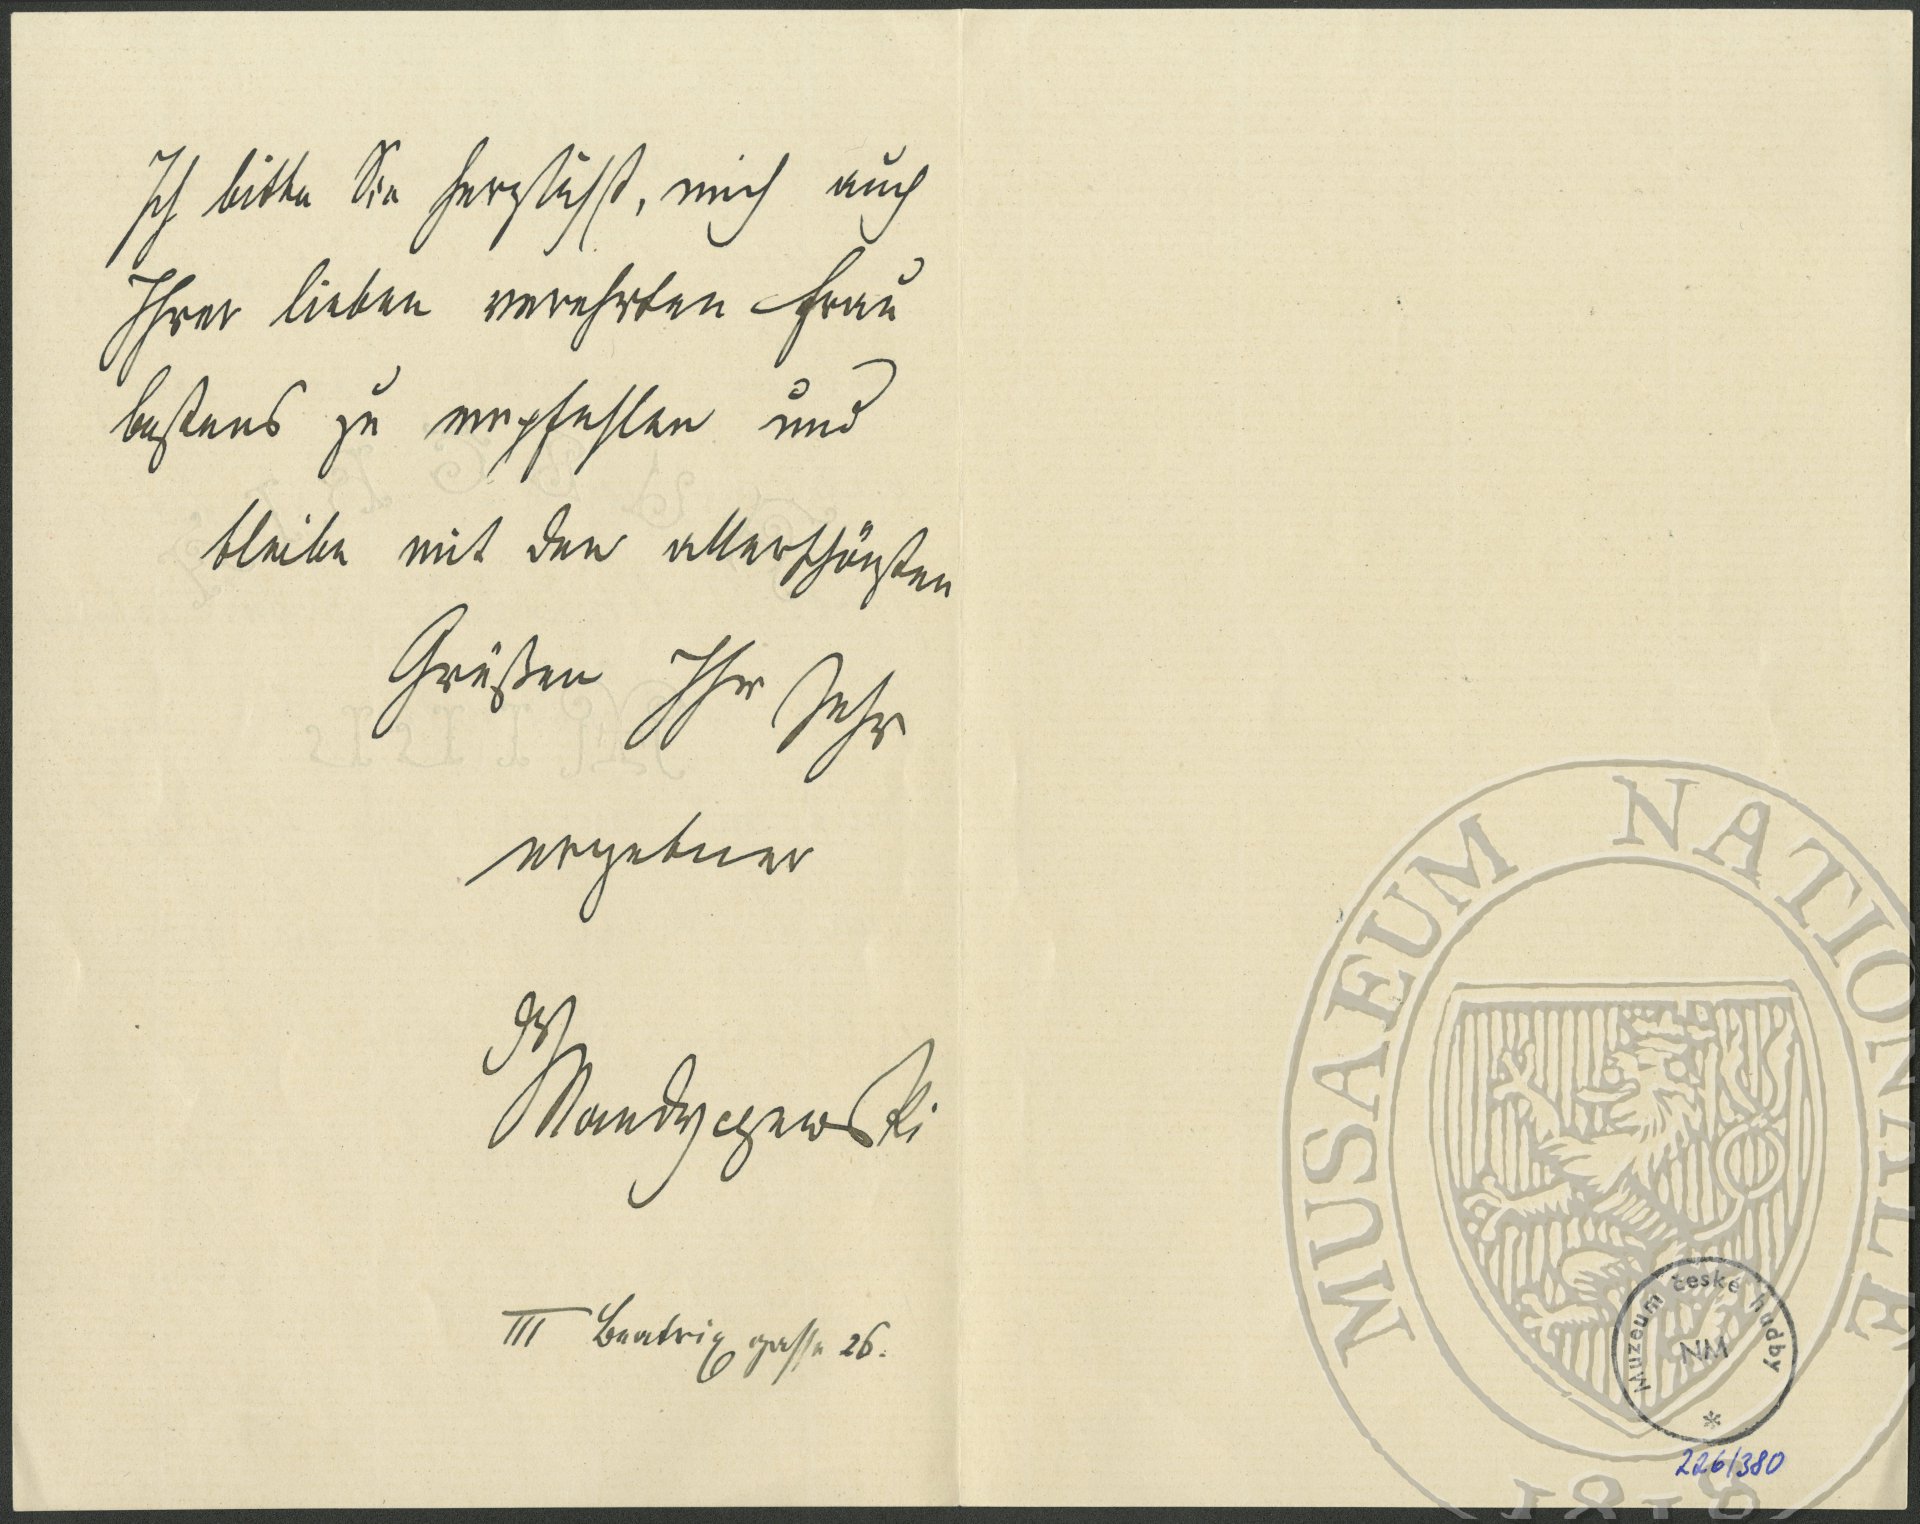 Ich bitte Sie herzlichst, mich auch
Ihrer lieben verehrten Frau
bestens zu empfehlen und
bleibe mit den allerschönsten
Grüßen Ihr sehr
ergebner
Dr
Mandyczewski
III Beatrixgasse 26.
MUSAEUM NATIONALE
1818
Muzeum české hudby
NM
*
226/380